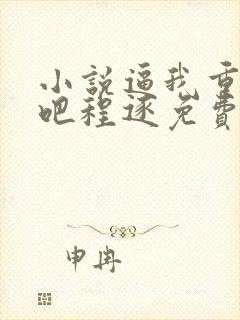 小說逼我重
吧程逐免費
申冉